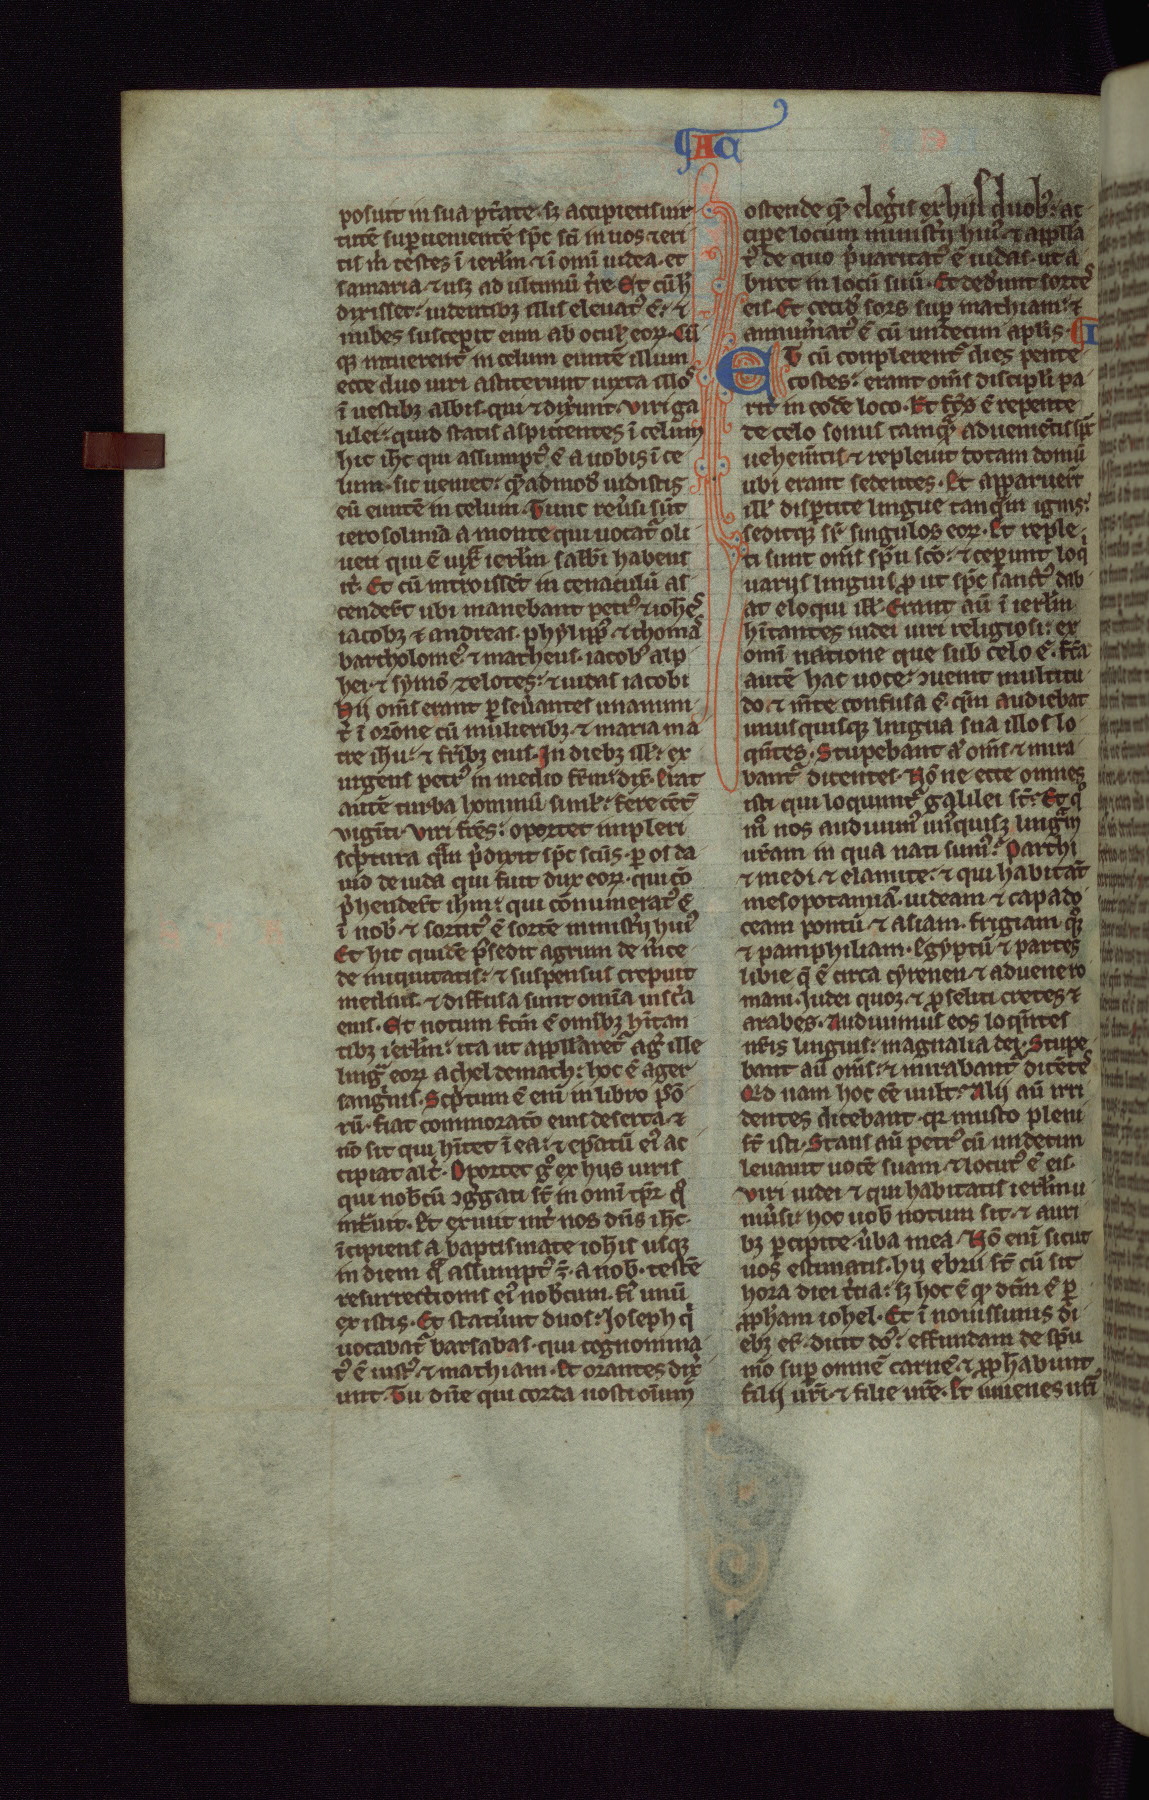 AC
posuit in sua p̃tate. sꝫ accipietis uir
tutẽ suꝑuenientẽ sp̃c sc̃i in uos ⁊ eri
tis m̃ testes ĩ ierl̃m ⁊ ĩ omĩ iudea et
samaria. ⁊ usꝫ ad ultimũ t̃re Et cũ h̾
dixisset: uidentibꝫ illis eleuatꝰ ẽ: ⁊
nubes suscepit eum ab ocul̾ eoꝝ. Cũ
qꝫ intuerent̃ in celum euntẽ illum
ecce duo uiri astiterunt iuxta illoˢ
ĩ uestibꝫ albis. qui ⁊ dix̃unt. Viri ga
lilei: quid statis aspicientes ĩ celum
hic ih̃c qui assumptꝰ ẽ a uobis ĩ ce
lum. sic ueniet: q̃ʒadmodũ uidistis
eũ euntẽ in celum. Tunc reũsi sũt
ierosolimã a monte qui uocat̃ oli
ueti qui ẽ iux̃ ierl̃m sabb̃i habens
it̾. Et cũ introissẽt in cenaculũ as
cender̃t ubi manebant petrꝰ ⁊ ioh̃eˢ
iacobꝫ ⁊ andreas. phylippꝰ ⁊ thomaˢ
bartholomeꝰ ⁊ matheus. iacobꝰ alp
hei. ⁊ symõ ⁊ zelotes: ⁊ iudas iacobi
Hij om̃s erant ꝑseũantes unanimi
t̾ ĩ or̃one cũ mulieribꝫ ⁊ maria ma
tre ih̃u: ⁊ fr̃ibꝫ eius. In diebꝫ ill̾: ex
urgens petrꝰ in medio fr̃m dix̾. Erat
autẽ turba hominũ simĺ: fere cẽt̃
viginti. Viri fr̃es: oportet impleri
sc̾ptura q̃m p̾dixit sp̃c sc̃us. ꝑ os da
uid de iuda qui fuit dux eoꝝ. qui cõ
p̾hender̃t ih̃m: qui cõnumeratꝰ ẽ
ĩ nob̾ ⁊ sortitꝰ ẽ sortẽ ministerij huiꝰ
Et hic quidẽ p̃sedit agrum de m̾ce
de iniquitatis: ⁊ suspensus crepuit
medius. ⁊ diffusa sunt omĩa uisc̃a
eius. Et notum fc̃m ẽ omĩbꝫ h̾itan
tibꝫ ierl̃m: ita ut appellaret̃ ag̾ ille
lingᵃ eoꝝ acheldemach: hoc ẽ ager
sanguis. Sc̾ptum ẽ eni in libro psõ
rũ. fiat commoratõ eius deserta. ⁊
nõ sit qui h̾itet ĩ ea: ⁊ ep̃atũ eiꝰ ac
cipiat alt̾. Oportet gͦ ex hijs uiris
qui nobcũ ɔg̾gati sũt in omĩ tp̃r qͦ
int̃uit. Et exiuit int̾ nos dñs ih̃c.
ĩcipiens a baptismate ioh̃is usqꝫ
in diem qͣ assumptꝰ ẽ. a nob̾. testẽ
resurrectionis eiꝰ nobcum. fi̾ unũ
ex istis. Et statũunt duos: Ioseph q̾
uocabat̃ barsabas. qui cognomina
tꝰ ẽ iustꝰ. ⁊ mathiam. Et orantes dix̾
unt. Tu dñe qui corda nosti om̃ium
ostende qͤ eleg̾is ex hijs duobꝰ: ac
cipe locum ministerij huiꝰ. ⁊ appl̃a
tꝰ de quo p̾uaricatꝰ ẽ iudas. ut a
biret in locũ suũ. Et dedẽunt sorteˢ
eis. Et cecid̾ sors suꝑ mathiam: ⁊
annum̃atꝰ ẽ cũ undecim aplis. CI
ET cũ conplerent̃ dies pente
costes: erant om̃s discipl̾i pa
rit̾ in eodẽ loco. Et fc̃s ẽ repente
de celo sonus tamqͣ aduenietis sp̃c
uehem̃tis. ⁊ repleuit totam domũ
ubi erant sedentes. Et apparuer̃t
ill̾ disꝑtite lingue tanqͣm ignis:
seditqꝫ sr̾ singulos eoꝝ. Et reple
ti sunt om̃s sp̃u sc̃o: ⁊ ceperunt loqͥ
varijs linguis ꝓ ut sp̃c sanctꝰ dab
at eloqui ill̾. Erant aũ ĩ ierl̃m
h̾itantes iudei uiri religiosi: ex
omĩ natione que sub celo ẽ. fc̃a
autẽ hac uoce: ɔuenit multitu
do. ⁊ m̃te confusa ẽ. q̃m audiebat
unusquisqꝫ lingua sua illos lo
qũtes. Stupebant aͫ om̃s ⁊ mira
bant̃ dicentes. Nõ ne ecce omnes
isti qui loquunt̃ galilei sũt: Et qͦ
mͦ nos audiuimꝰ un̾quisqꝫ linguãm
nr̃am in qua nati sumꝰ: Parthi
⁊ medi. ⁊ elamite: ⁊ qui habitãt
mesopotamiã. iudeam ⁊ capado
ceam pontũ ⁊ asiam. frigiam qꝫ
⁊ pamphiliam. Egyptũ ⁊ partes
libie q̃ ẽ circa cyrenen. ⁊ adueñe ro
mani. Iudei quoqꝫ. ⁊ ꝓseliti cretes ⁊
arabes. Audiuimus eos loq̃ntes
nr̃is linguis: magnalia dei. Stupe
bant aũ om̃s: ⁊ mirabant̃ dicẽtes
Qͥd nam hoc ẽe uult: Alij aũ irri
dentes dicebant. qꝛ musto pleni
sũt isti. Stans aũ petrꝰ cũ undecim
leuauit uocẽ suam. ⁊ locutꝰ ẽ eis.
Viri iudei ⁊ qui habitatis ierl̃m u
niũsi: hoc uob̾ notum sit. ⁊ auri
bꝫ ꝑcipite ũba mea. Nõ eni sicut
uos estimatis. hij ebrii sũt cũ sit
hora diei t̾cia: sꝫ hoc ẽ qͩ dc̃m ẽ ꝑ
ꝓph̃am iohel. Et ĩ nouissimis di
ebꝫ er̾. dicit dñs: effundam de sp̃u
meo suꝑ omnẽ carnẽ. ⁊ ꝓph̃abunt
filij ur̃i ⁊ filie ur̃e. Et iuuenes ur̃i